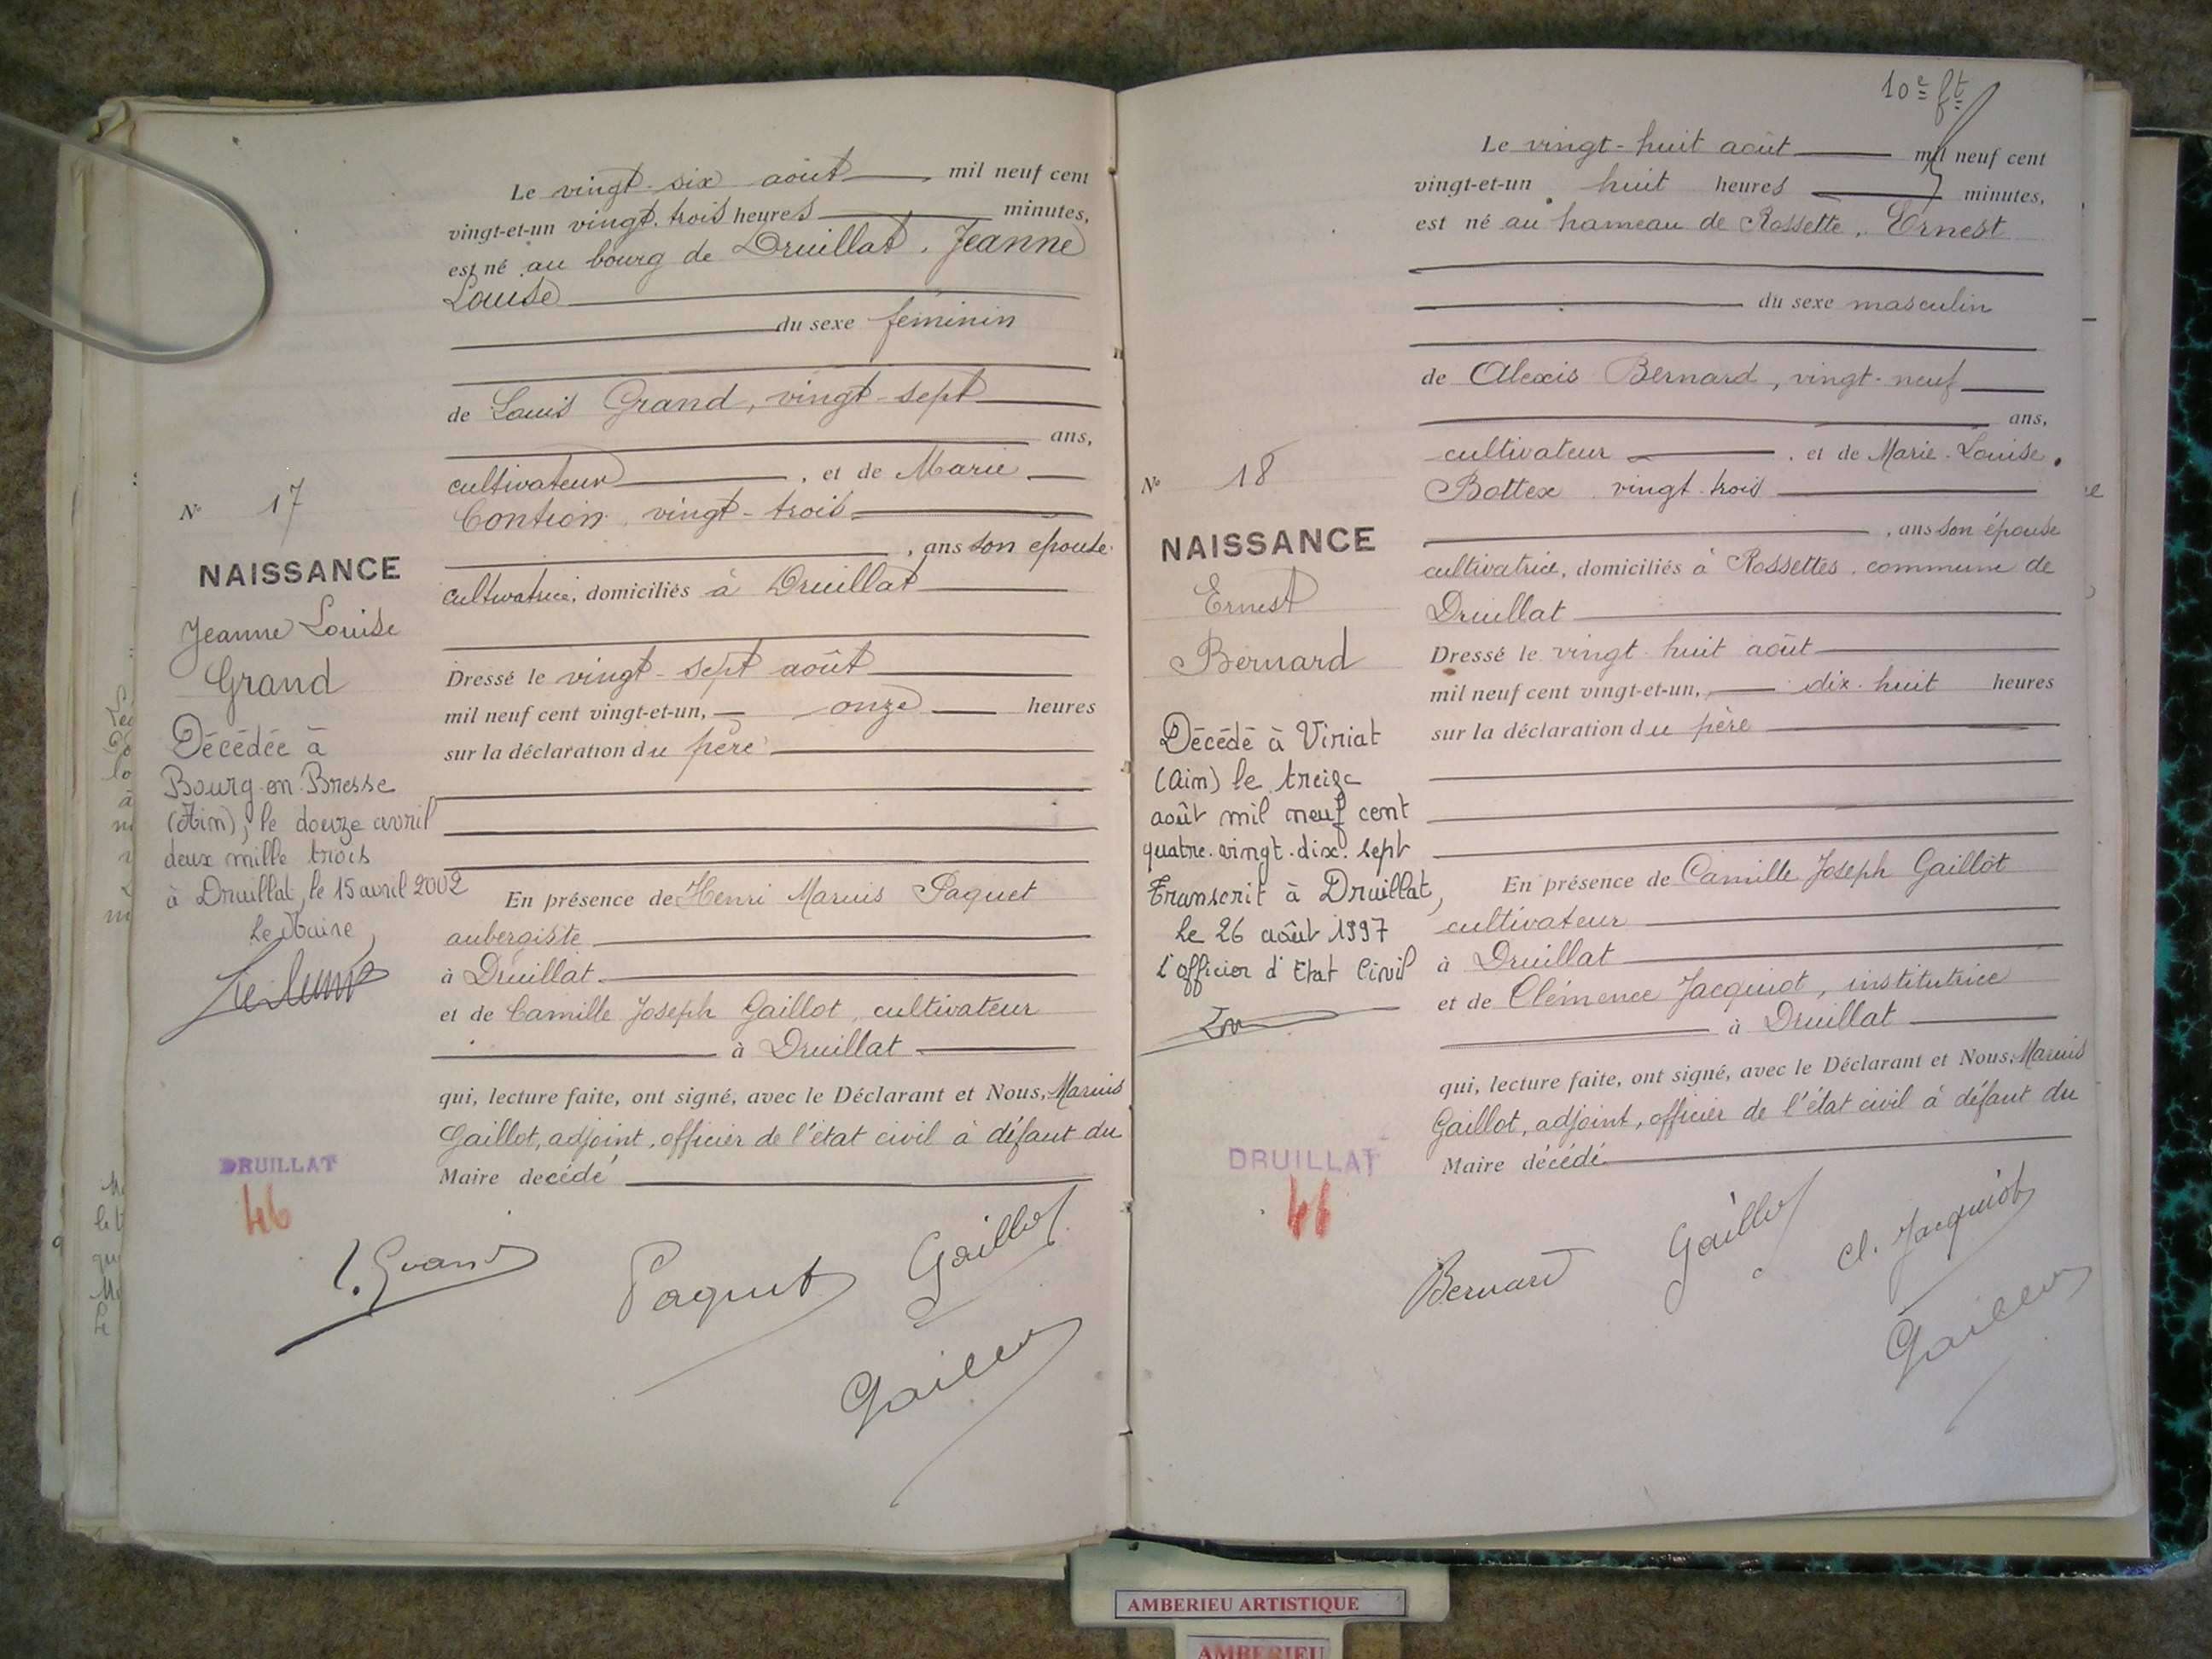 Le vingt-six août mil neuf cent
vingt-et-un vingt-trois heures minutes,
est né au bourg de Druillat, Jeanne
Louise
du sexe féminin
de Louis Grand, vingt-sept
ans,
cultivateur, et de Marie
Contion, vingt-trois
, ans son épouse
cultivatrice, domiciliés à Druillat
Dressé le vingt-sept août
mil neuf cent vingt-et-un, onze heures
sur la déclaration du père
En présence de Henri Marius Paquet
aubergiste
à Druillat
et de Camille Joseph Gaillot, cultivateur
à Druillat
qui, lecture faite, ont signé, avec le Déclarant et Nous, Marius
Gaillot, adjoint, officier de l'état civil à défaut du
Maire decédé
N° 17
NAISSANCE
Jeanne Louise
Grand
Décédée à
Bourg-en-Bresse
(Ain), le douze avril
deux mille trois
à Druillat, le 15 avril 2002
Le Maire,
DRUILLAT
46
L. Grand
Paquet
Gaillot
Gaillot
10e ft
Le vingt-huit août mil neuf cent
vingt-et-un huit heures minutes,
est né au hameau de Rossette, Ernest
du sexe masculin
de Alexis Bernard, vingt-neuf
ans,
cultivateur, et de Marie-Louise
Bottex vingt-trois
, ans son épouse
cultivatrice, domiciliés à Rossettes, commune de
Druillat
Dressé le vingt huit août
mil neuf cent vingt-et-un, dix-huit heures
sur la déclaration du père
En présence de Camille Joseph Gaillot
cultivateur
à Druillat
et de Clémence Jacquiot, institutrice
à Druillat
qui, lecture faite, ont signé, avec le Déclarant et Nous, Marius
Gaillot, adjoint, officier de l'état civil à défaut du
Maire décédé
N° 18
NAISSANCE
Ernest
Bernard
Décédé à Viriat
(Ain) le treize
août mil neuf cent
quatre-vingt-dix-sept
Transcrit à Druillat,
le 26 août 1997
l'officier d'Etat Civil
DRUILLAT
46
Bernard
Gaillot
Cl. Jacquiot
Gaillot
AMBERIEU ARTISTIQUE
AMBERIEU